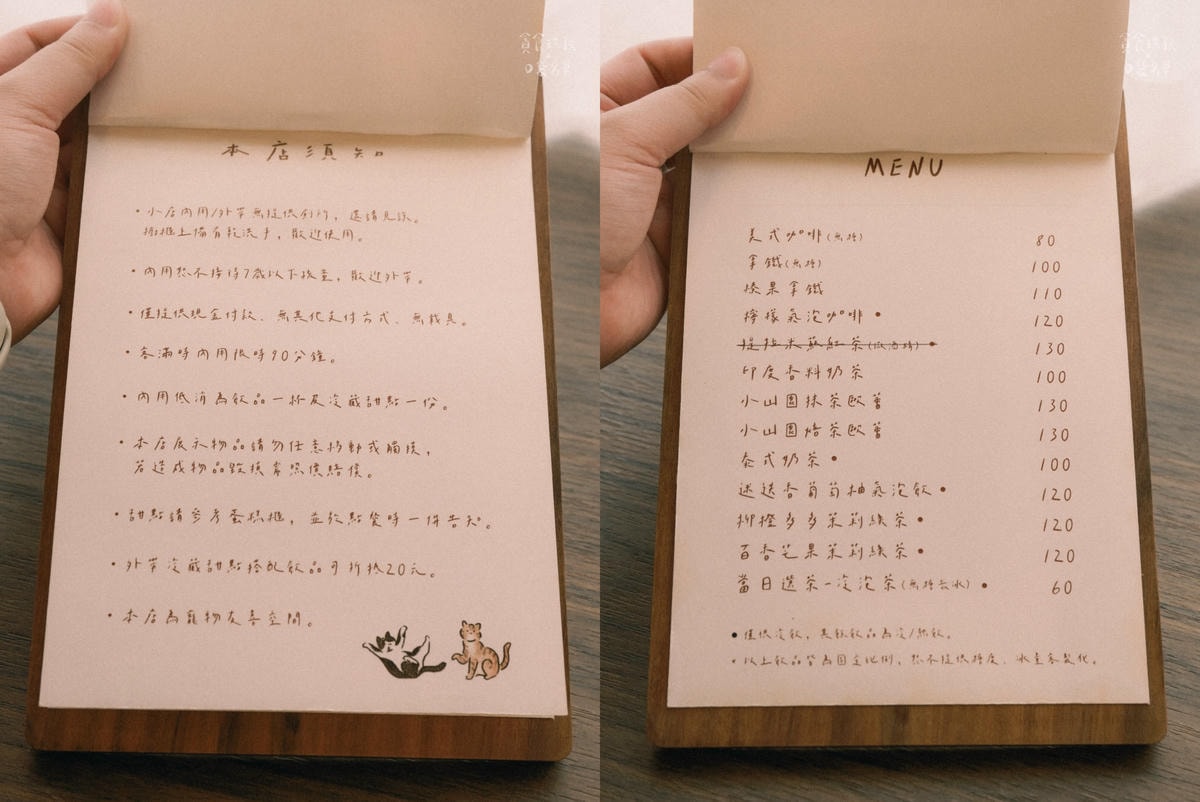 本店須知
•小店內用/外帶無提供廁所，還請見諒。
櫥櫃上備有乾洗手，歡迎使用。
•內用恕不接待7歲以下孩童，歡迎外帶。
•僅提供現金付款、無其他支付方式、無載具。
•客滿時內用限時90分鐘。
•內用低消為飲品一杯及冷藏甜點一份。
•本店展示物品請勿任意移動或觸摸，
若造成物品毀損需照價賠償。
•甜點請參考蛋糕櫃，並於點餐時一併告知。
•外帶冷藏甜點搭配飲品可折抵20元。
•本店為寵物友善空間。
MENU
美式咖啡(無糖) 80
拿鐵(無糖) 100
榛果拿鐵 110
檸檬氣泡咖啡• 120
提拉米蘇紅茶(低酒精)• 130
印度香料奶茶 100
小山園抹茶歐蕾 130
小山園焙茶歐蕾 130
泰式奶茶• 100
迷迭香葡萄柚氣泡飲• 120
柳橙多多茉莉綠茶• 120
百香芒果茉莉綠茶• 120
當日選茶-冷泡茶(無糖去冰)• 60
•僅供冷飲，其餘飲品為冷/熱飲。
•以上飲品皆為固定比例，恕不提供糖度、冰量客製化。